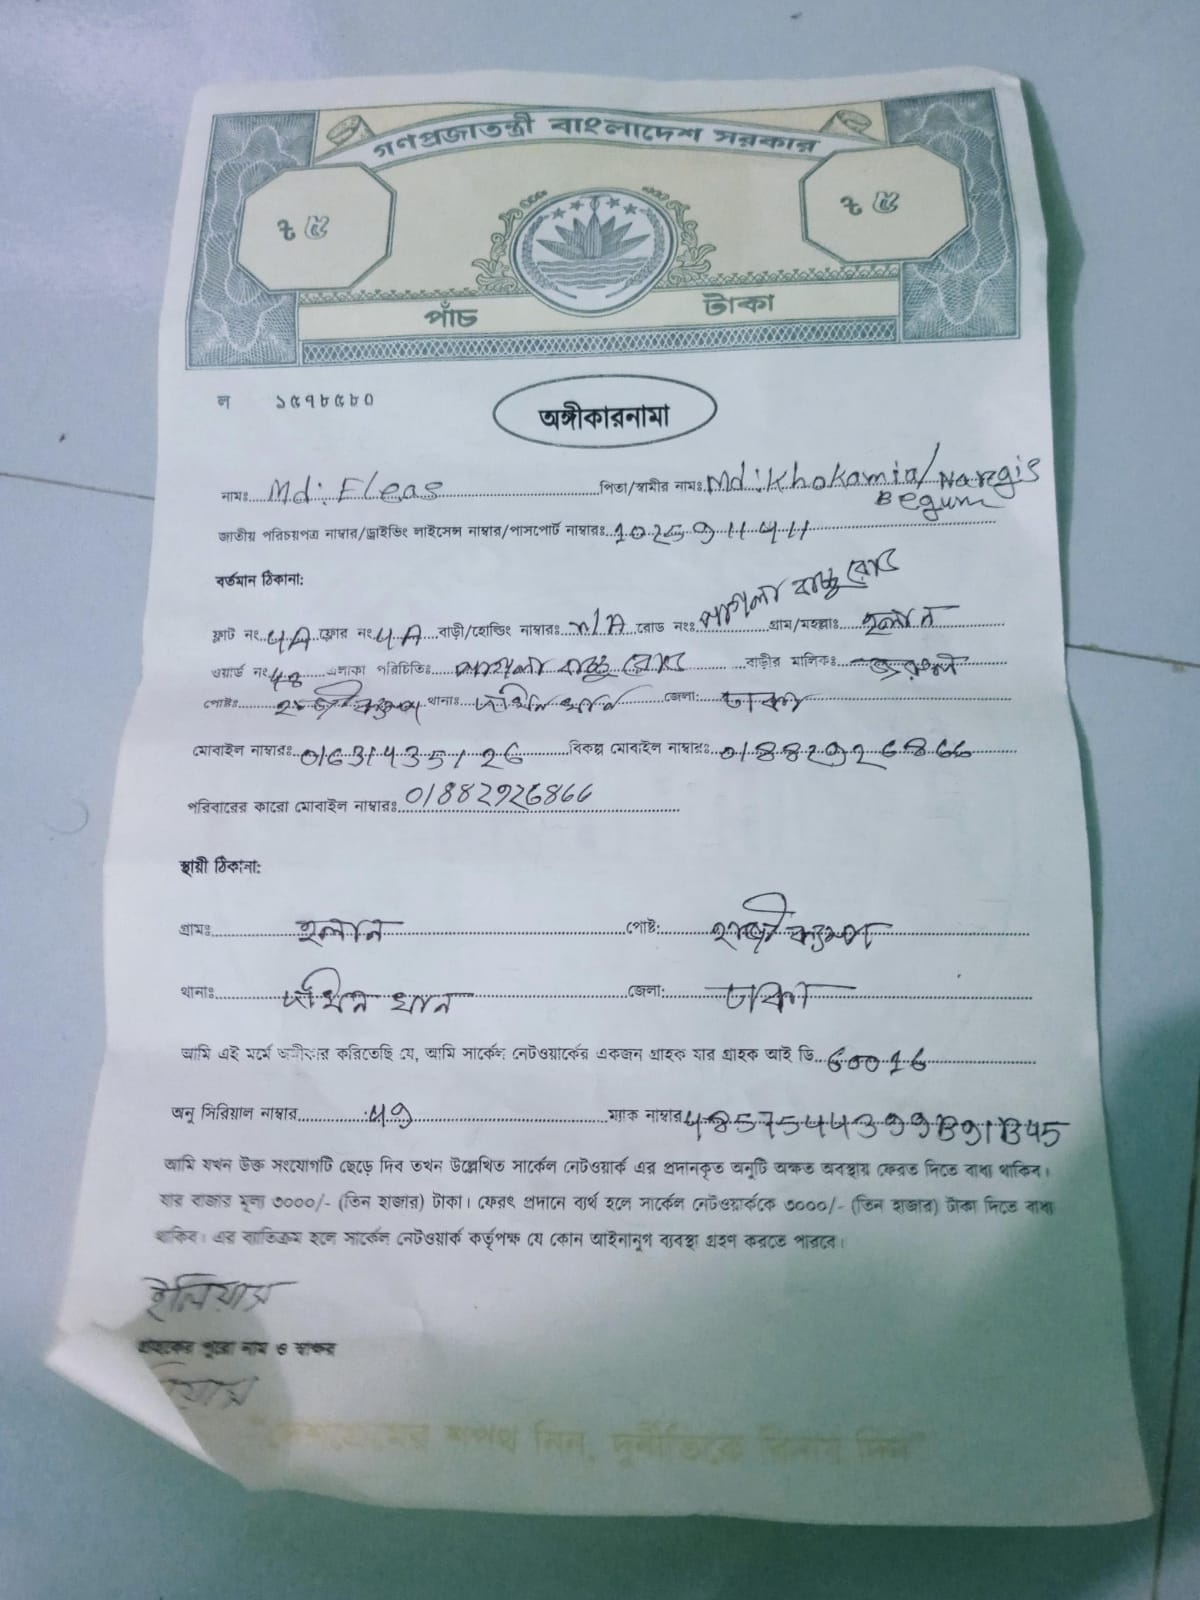 গণপ্রজাতন্ত্রী বাংলাদেশ সরকার
৳ ৫ ৳ ৫
পাঁচ টাকা
ল ১৫৭৮৫৮০
অঙ্গীকারনামা
নামঃ Md: Eleas পিতা/স্বামীর নামঃ Md: Khokamia/Nargis Begum
জাতীয় পরিচয়পত্র নাম্বার/ড্রাইভিং লাইসেন্স নাম্বার/পাসপোর্ট নাম্বারঃ
বর্তমান ঠিকানা:
ফ্লাট নং 4A ফ্লোর নং 4A বাড়ী/হোল্ডিং নাম্বারঃ N/A রোড নংঃ পাগলা বাচ্চু রোড গ্রাম/মহল্লাঃ হলান
ওয়ার্ড নং 48 এলাকা পরিচিতিঃ পাগলা বাচ্চু রোড বাড়ীর মালিকঃ
পোষ্টঃ হাজী ক্যাম্প থানাঃ দক্ষিন খান জেলা: ঢাকা
মোবাইল নাম্বারঃ 01631435126 বিকল্প মোবাইল নাম্বারঃ 01882926866
পরিবারের কারো মোবাইল নাম্বারঃ 01882926866
স্থায়ী ঠিকানা:
গ্রামঃ হলান পোষ্ট: হাজী ক্যাম্প
থানাঃ দক্ষিন খান জেলা: ঢাকা
আমি এই মর্মে অঙ্গীকার করিতেছি যে, আমি সার্কেল নেটওয়ার্কের একজন গ্রাহক যার গ্রাহক আই ডি 60016
অনু সিরিয়াল নাম্বার ম্যাক নাম্বার
আমি যখন উক্ত সংযোগটি ছেড়ে দিব তখন উল্লেখিত সার্কেল নেটওয়ার্ক এর প্রদানকৃত অনুটি অক্ষত অবস্থায় ফেরত দিতে বাধ্য থাকিব।
যার বাজার মূল্য ৩০০০/- (তিন হাজার) টাকা। ফেরৎ প্রদানে ব্যর্থ হলে সার্কেল নেটওয়ার্ককে ৩০০০/- (তিন হাজার) টাকা দিতে বাধ্য
থাকিব। এর ব্যতিক্রম হলে সার্কেল নেটওয়ার্ক কর্তৃপক্ষ যে কোন আইনানুগ ব্যবস্থা গ্রহণ করতে পারবে।
ইলিয়াস
গ্রাহকের পুরো নাম ও স্বাক্ষর
"দেশপ্রেমের শপথ নিন, দুর্নীতিকে বিদায় দিন"